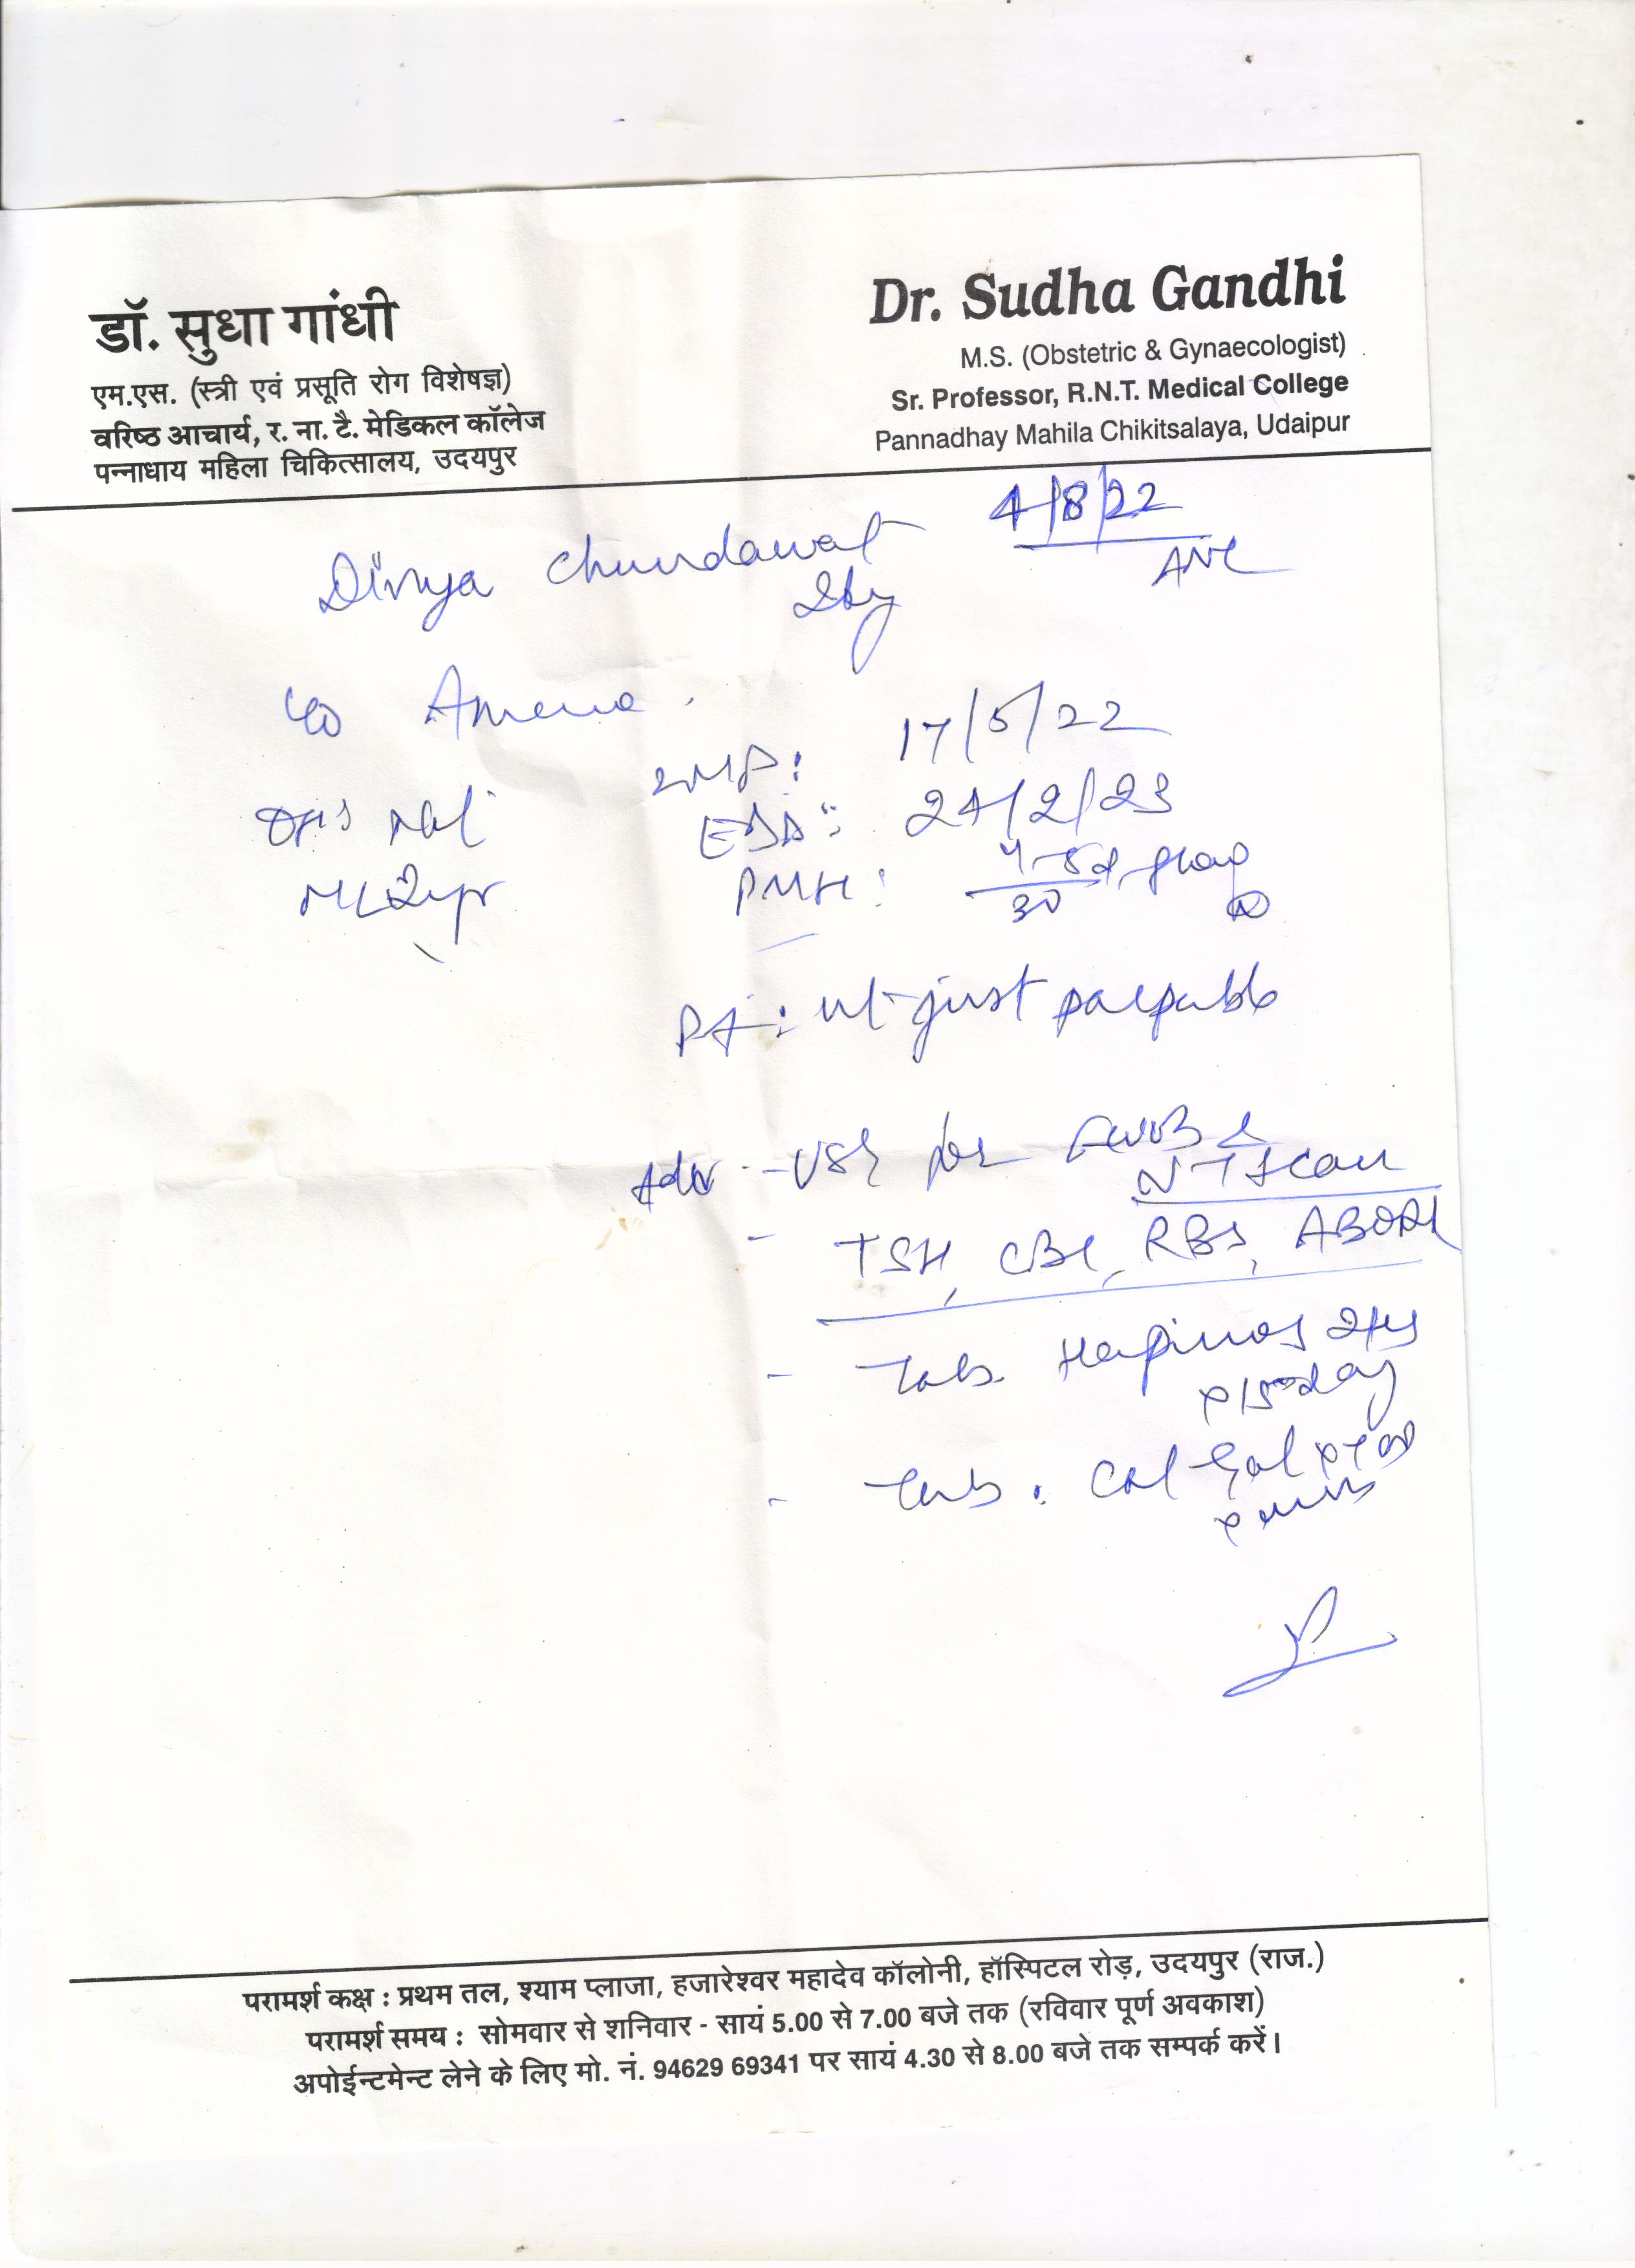 डॉ. सुधा गांधी
एम.एस. (स्त्री एवं प्रसूति रोग विशेषज्ञ)
वरिष्ठ आचार्य, र. ना. टै. मेडिकल कॉलेज
पन्नाधाय महिला चिकित्सालय, उदयपुर
Dr. Sudha Gandhi
M.S. (Obstetric & Gynaecologist)
Sr. Professor, R.N.T. Medical College
Pannadhay Mahila Chikitsalaya, Udaipur
4/8/22
ANC
Divya Chundawat
LMP: 17/5/22
EDD: 24/2/23
PMH: 4-5d
30
P/A: ut-just palpable
Adv - USG for FWB &
NT Scan
- TSH, CBC, RBS, ABORh
- Tab.
x 15 day
- Tab.
परामर्श कक्ष : प्रथम तल, श्याम प्लाजा, हजारेश्वर महादेव कॉलोनी, हॉस्पिटल रोड़, उदयपुर (राज.)
परामर्श समय : सोमवार से शनिवार - सायं 5.00 से 7.00 बजे तक (रविवार पूर्ण अवकाश)
अपोईन्टमेन्ट लेने के लिए मो. नं. 94629 69341 पर सायं 4.30 से 8.00 बजे तक सम्पर्क करें।